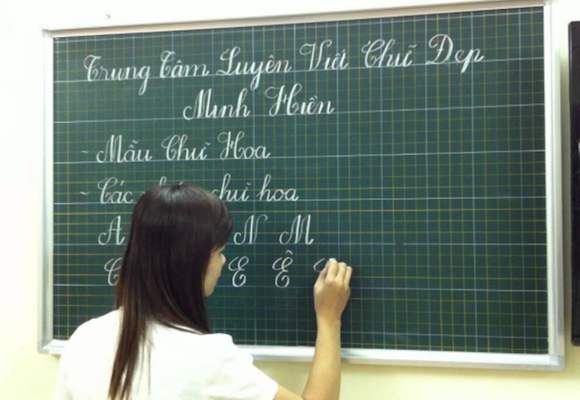 Trung Tâm Luyện Viết Chữ Đẹp
Minh Hiền
~ Mẫu Chữ Hoa
~ Các chữ hoa
A N M
C E Ê